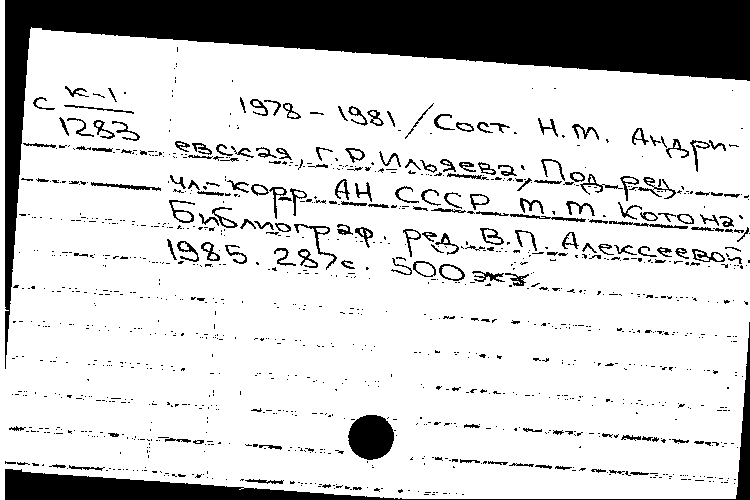 с К-1
1283
1978-1981/Сост. Н.М. Андри-
евская, Г.Р.Ильяева; Под ред.
чл.-корр. АН СССР М.М. Котона;
Библиограф. ред. В.П. Алексеевой.
1985. 287с. 500 экз.